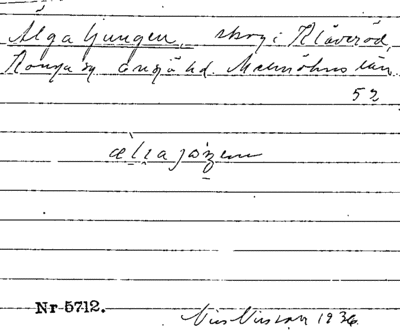 Älga ljungen, skog i Klöveröd,
Konga sn Önnsjö hd. Malmöhus län
52
Nr 5712. Nils Nilsson 1936